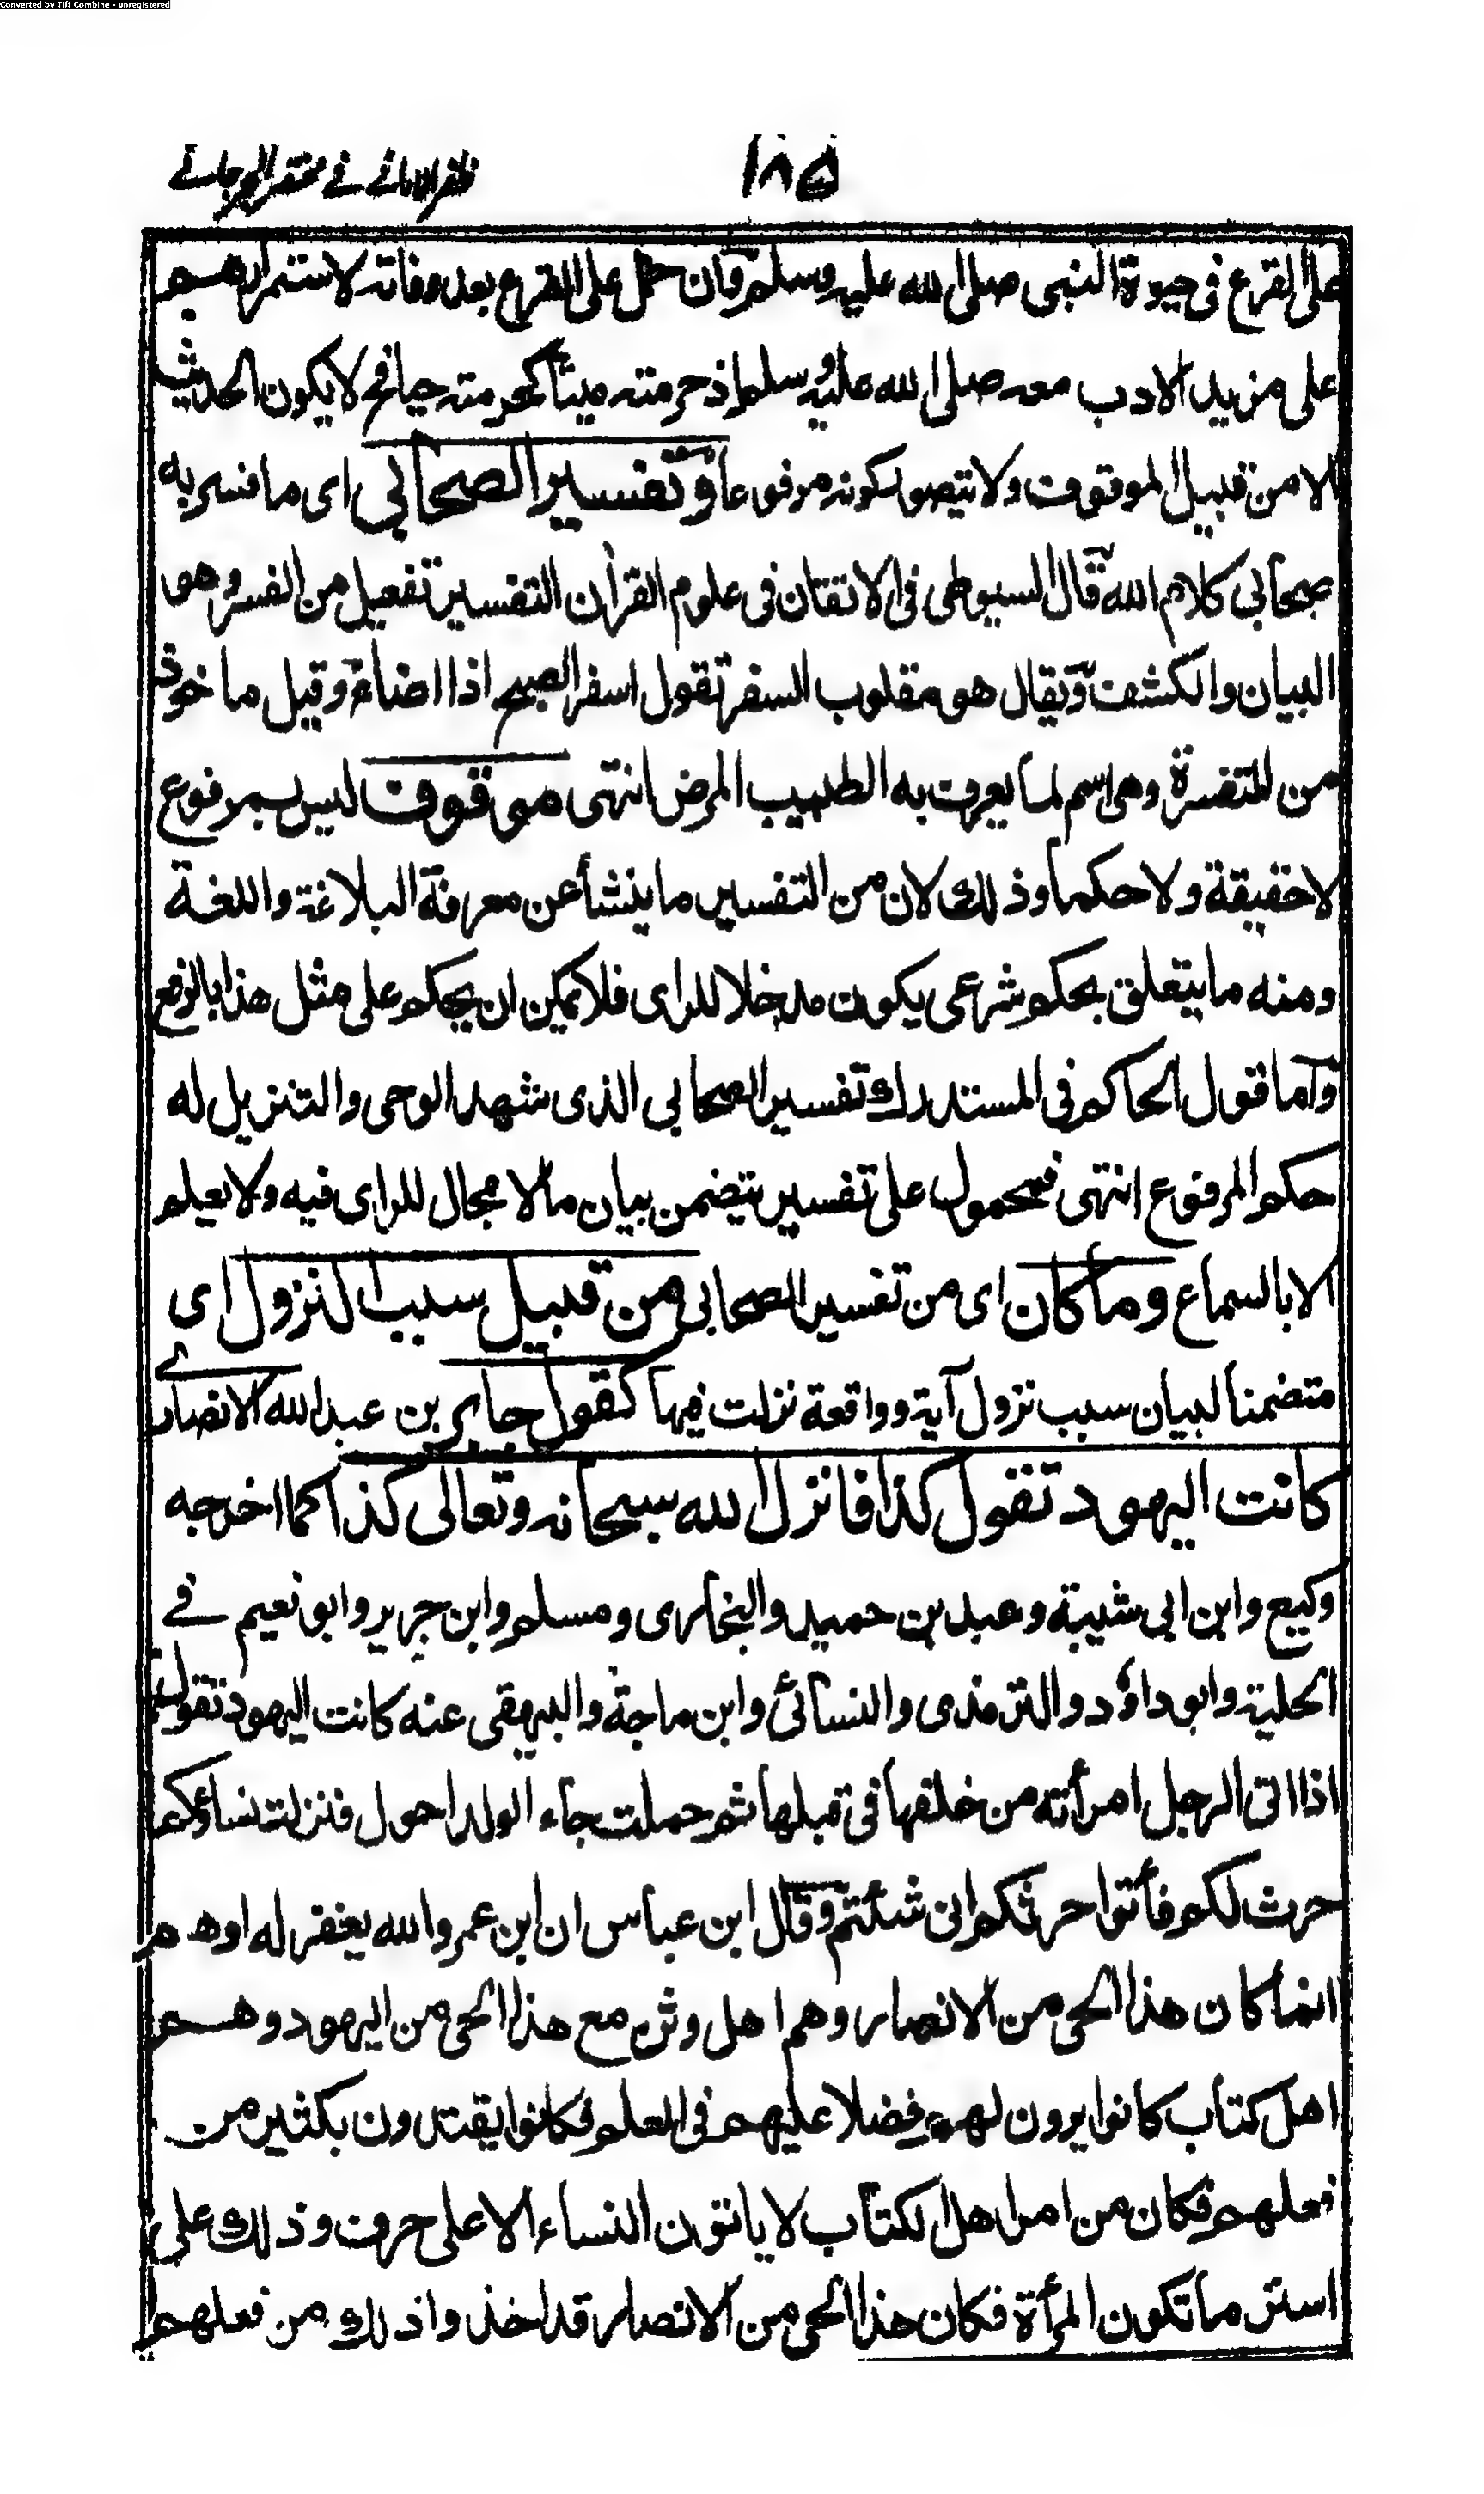 Converted by Tiff Combine - unregistered
١٨٥ ظفر الامانے فے مختصر الجرجانے
على القرع فى حيوة النبى صلى الله عليه وسلم وان حمل على القرع بعد وفاته لاستمرارهم
على مزيد الادب معه صلى الله عليه وسلم اذ حرمته ميتا كحرمته حيا فح لا يكون الحديث
الا من قبيل الموقوف ولا يتصور كونه مرفوعا وتفسير الصحابي اى ما فسر به
صحابي كلام الله قال السيوطى فى الاتقان فى علوم القرأن التفسير تفعيل من الفسر وهو
البيان والكشف ويقال هو مقلوب السفر تقول اسفر الصبح اذا اضاء وقيل ماخوذ
من التفسرة وهى اسم لما يعرف به الطبيب المرض انتهى موقوف ليس بمرفوع
لا حقيقة ولا حكما وذلك لان من التفسير ما ينشأ عن معرفة البلاغة واللغة
ومنه ما يتعلق بحكم شرعى يكون مدخلا للراى فلا يمكن ان يحكم على مثل هذا بالرفع
واما قول الحاكم فى المستدرك تفسير الصحابي الذى شهد الوحى والتنزيل له
حكم المرفوع انتهى فمحمول على تفسير يتضمن بيان ما لا مجال للراى فيه ولا يعلم
الا بالسماع وما كان اى من تفسير الصحابي من قبيل سبب النزول اى
متضمنا لبيان سبب نزول آية وواقعة نزلت فيها كقول جابر بن عبد الله الانصارے
كانت اليهود تقول كذا فانزل الله سبحانه وتعالى كذا كما اخرجه
وكيع وابن ابى شيبة وعبد بن حميد والبخارى ومسلم وابن جرير وابو نعيم فے
الحلية وابو داؤد والترمذى والنسائى وابن ماجة والبيهقى عنه كانت اليهود تقول
اذا اتى الرجل امرأته من خلفها فى قبلها ثم حملت جاء الولد احول فنزلت نساؤكم
حرث لكم فأتوا حرثكم انى شئتم وقال ابن عباس ان ابن عمر والله يغفر له اوهم
انما كان هذا الحى من الانصار وهم اهل وثن مع هذا الحى من اليهود وهم
اهل كتاب كانوا يرون لهم فضلا عليهم فى العلم فكانوا يقتدون بكثير من
فعلهم فكان من امر اهل الكتاب لا ياتون النساء الا على حرف وذلك على
استر ما تكون المرأة فكان هذا الحى من الانصار قد اخذوا ذلك من فعلهم